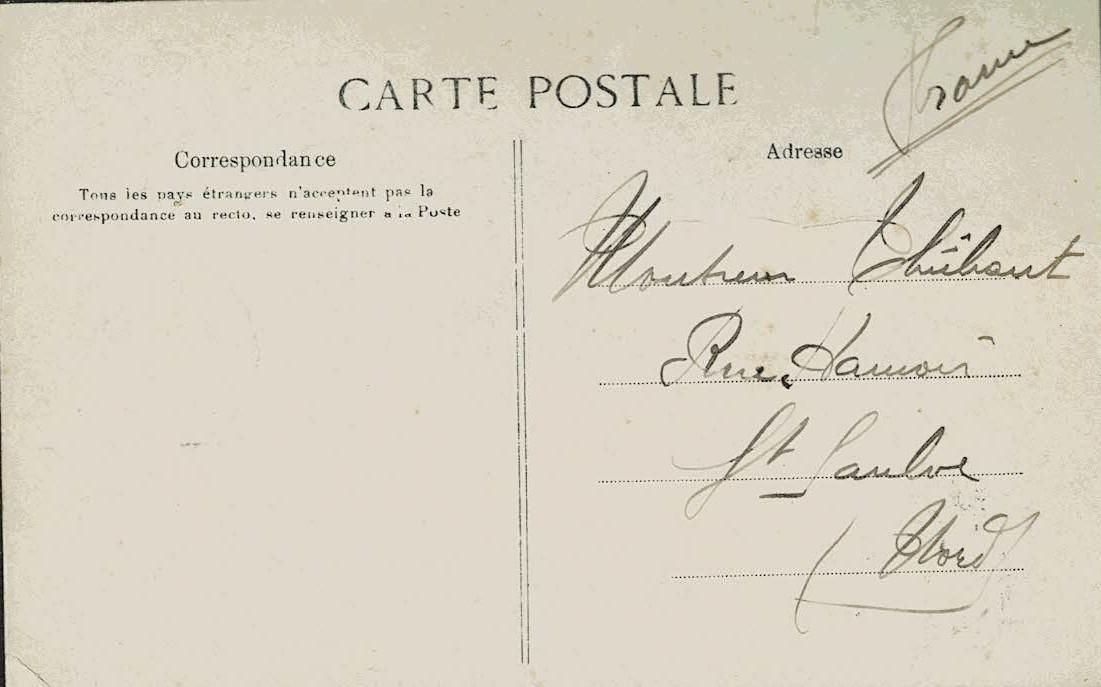 France
CARTE POSTALE
Correspondance
Tous les pays étrangers n'acceptent pas la
correspondance au recto, se renseigner à la Poste
Adresse
Monsieur Thiébaut
Rue Hamoir
St Saulve
(Nord)